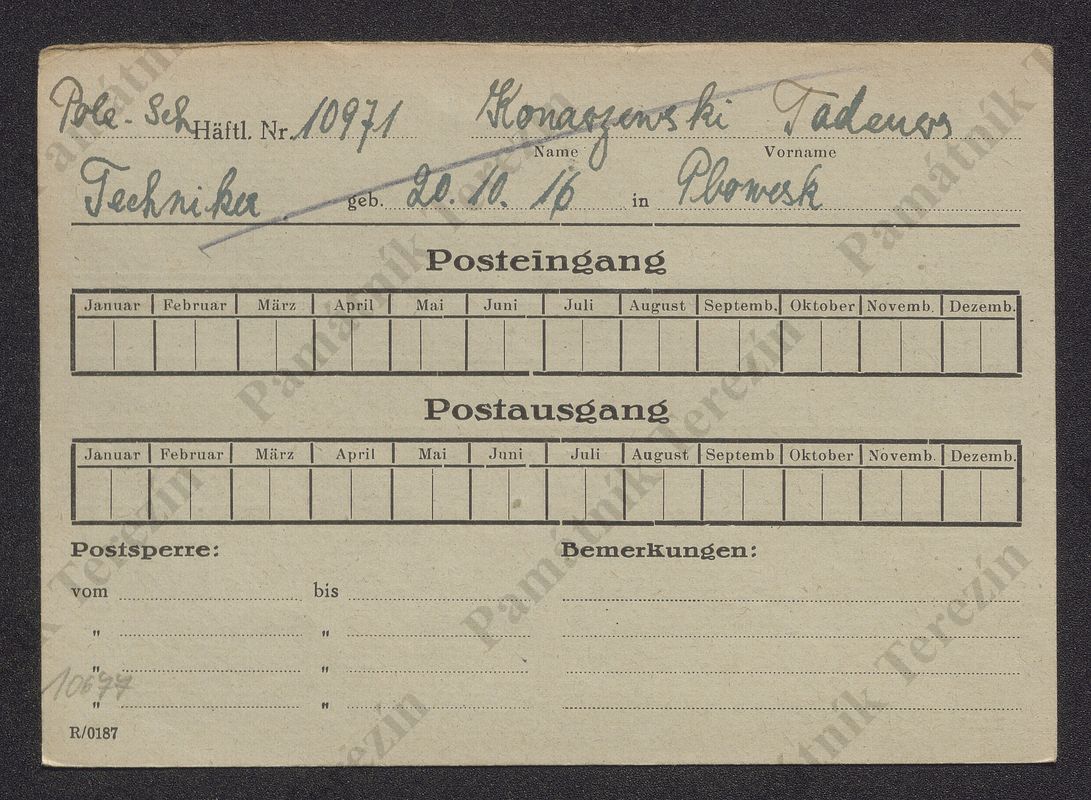 Pole - Sch Häftl. Nr. 10971 Konaszewski Tadeusz
Name Vorname
Techniker geb. 20. 10. 16 in
Posteingang
Januar Februar März April Mai Juni Juli August Septemb. Oktober Novemb. Dezemb.
Postausgang
Januar Februar März April Mai Juni Juli August Septemb Oktober Novemb. Dezemb.
Postsperre: Bemerkungen:
vom bis
" "
" "
10677
" "
R/0187
Památník Terezín